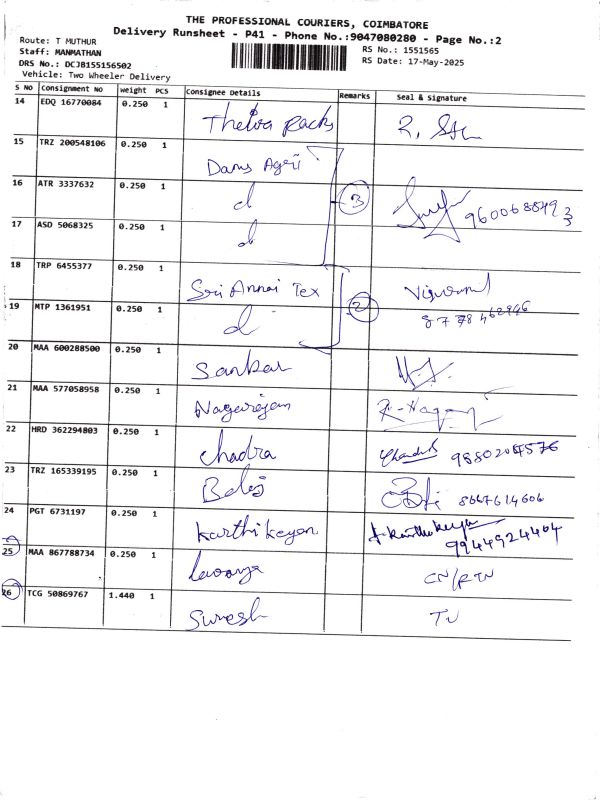 THE PROFESSIONAL COURIERS, COIMBATORE
Delivery Runsheet - P41 - Phone No.:9047080280 - Page No.:2
Route: T MUTHUR
Staff: MANMATHAN
RS No.: 1551565
DRS No.: DCJB155156502
RS Date: 17-May-2025
Vehicle: Two Wheeler Delivery
S No Consignment No Weight PCS Consignee Details Remarks Seal & Signature
14 EDQ 16770084 0.250 1
15 TRZ 200548106 0.250 1
16 ATR 3337632 0.250 1 d 3
17 ASD 5068325 0.250 1 d
18 TRP 6455377 0.250 1 Sri Annai Tex 2
19 MTP 1361951 0.250 1 d
20 MAA 600288500 0.250 1 Sankar
21 MAA 577058958 0.250 1 Nagarajan
22 HRD 362294803 0.250 1 Chadra
23 TRZ 165339195 0.250 1 8667614606
24 PGT 6731197 0.250 1 Karthikeyan 9944924404
25 MAA 867788734 0.250 1 CN/RTN
26 TCG 50869767 1.440 1 Suresh